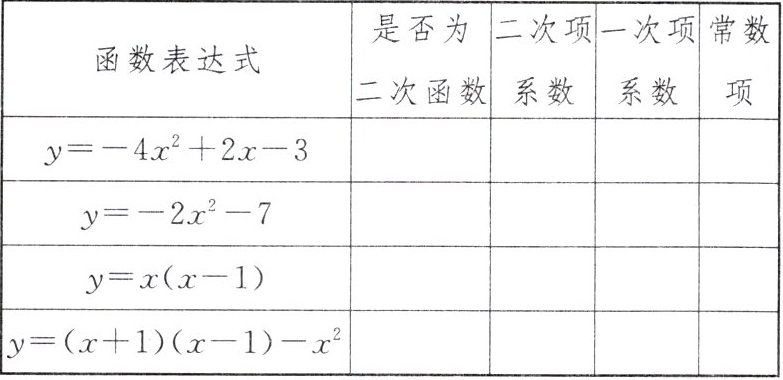 函数表达式 是否为二次函数 二次项系数 一次项系数 常数项
y=-4x²+2x-3
y=-2x²-7
y=x(x-1)
y=(x+1)(x-1)-x²